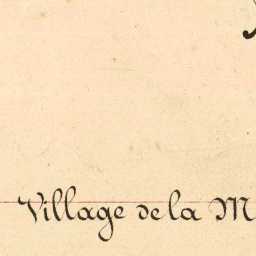 Village de la M